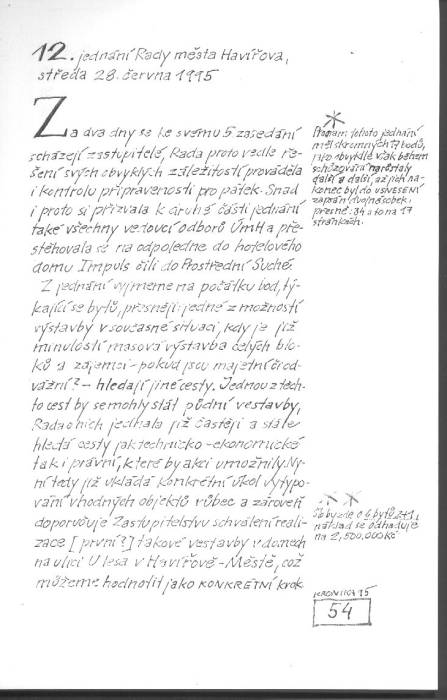 12. jednání Rady města Havířova,
středa 28. června 1995
Za dva dny se ke svému 5 zasedání
scházejí zastupitelé, Rada proto vedle ře-
šení svých obvyklých záležitostí prováděla
i kontrolu připravenosti pro pátek. Snad
i proto si přizvala k druhé části jednání
také všechny vedoucí odborů ÚmH a pře-
stěhovala se na odpoledne do hotelového
domu Impuls čili do Prostřední Suché.
Z jednání vyjmeme na počátku bod, tý-
kající se bytů, přesněji: jedné z možností
výstavby v současné situaci, kdy je již
minulostí masová výstavba celých blo-
ků a zájemci - pokud jsou majetní či od-
vážní? - hledají jiné cesty. Jednou z těch-
to cest by se mohly stát půdní vestavby,
Rada o nich jednala již častěji a stále
hledá cesty jak technicko-ekonomické
tak i právní, které by akci umožnily. Ny-
ní tedy již ukládá konkrétní úkol vytypo-
vání vhodných objektů vůbec a zároveň
doporučuje Zastupitelstvu schválení reali-
zace [první?] takové vestavby v domech
na ulici U lesa v Havířově-Městě, což
můžeme hodnotit jako KONKRÉTNÍ krok
*
Program tohoto jednání
měl skromných 17 bodů,
jako obvykle však během
schůzování narůstaly
další a další, až jich na-
konec byl do usnesení
zapsán dvojnásobek:
přesně: 34 a to na 17
stránkách.
**
Šlo by zde o 6 bytů 2+1,
náklad se odhaduje
na 2,500.000 Kč
KRONIKA 95
54